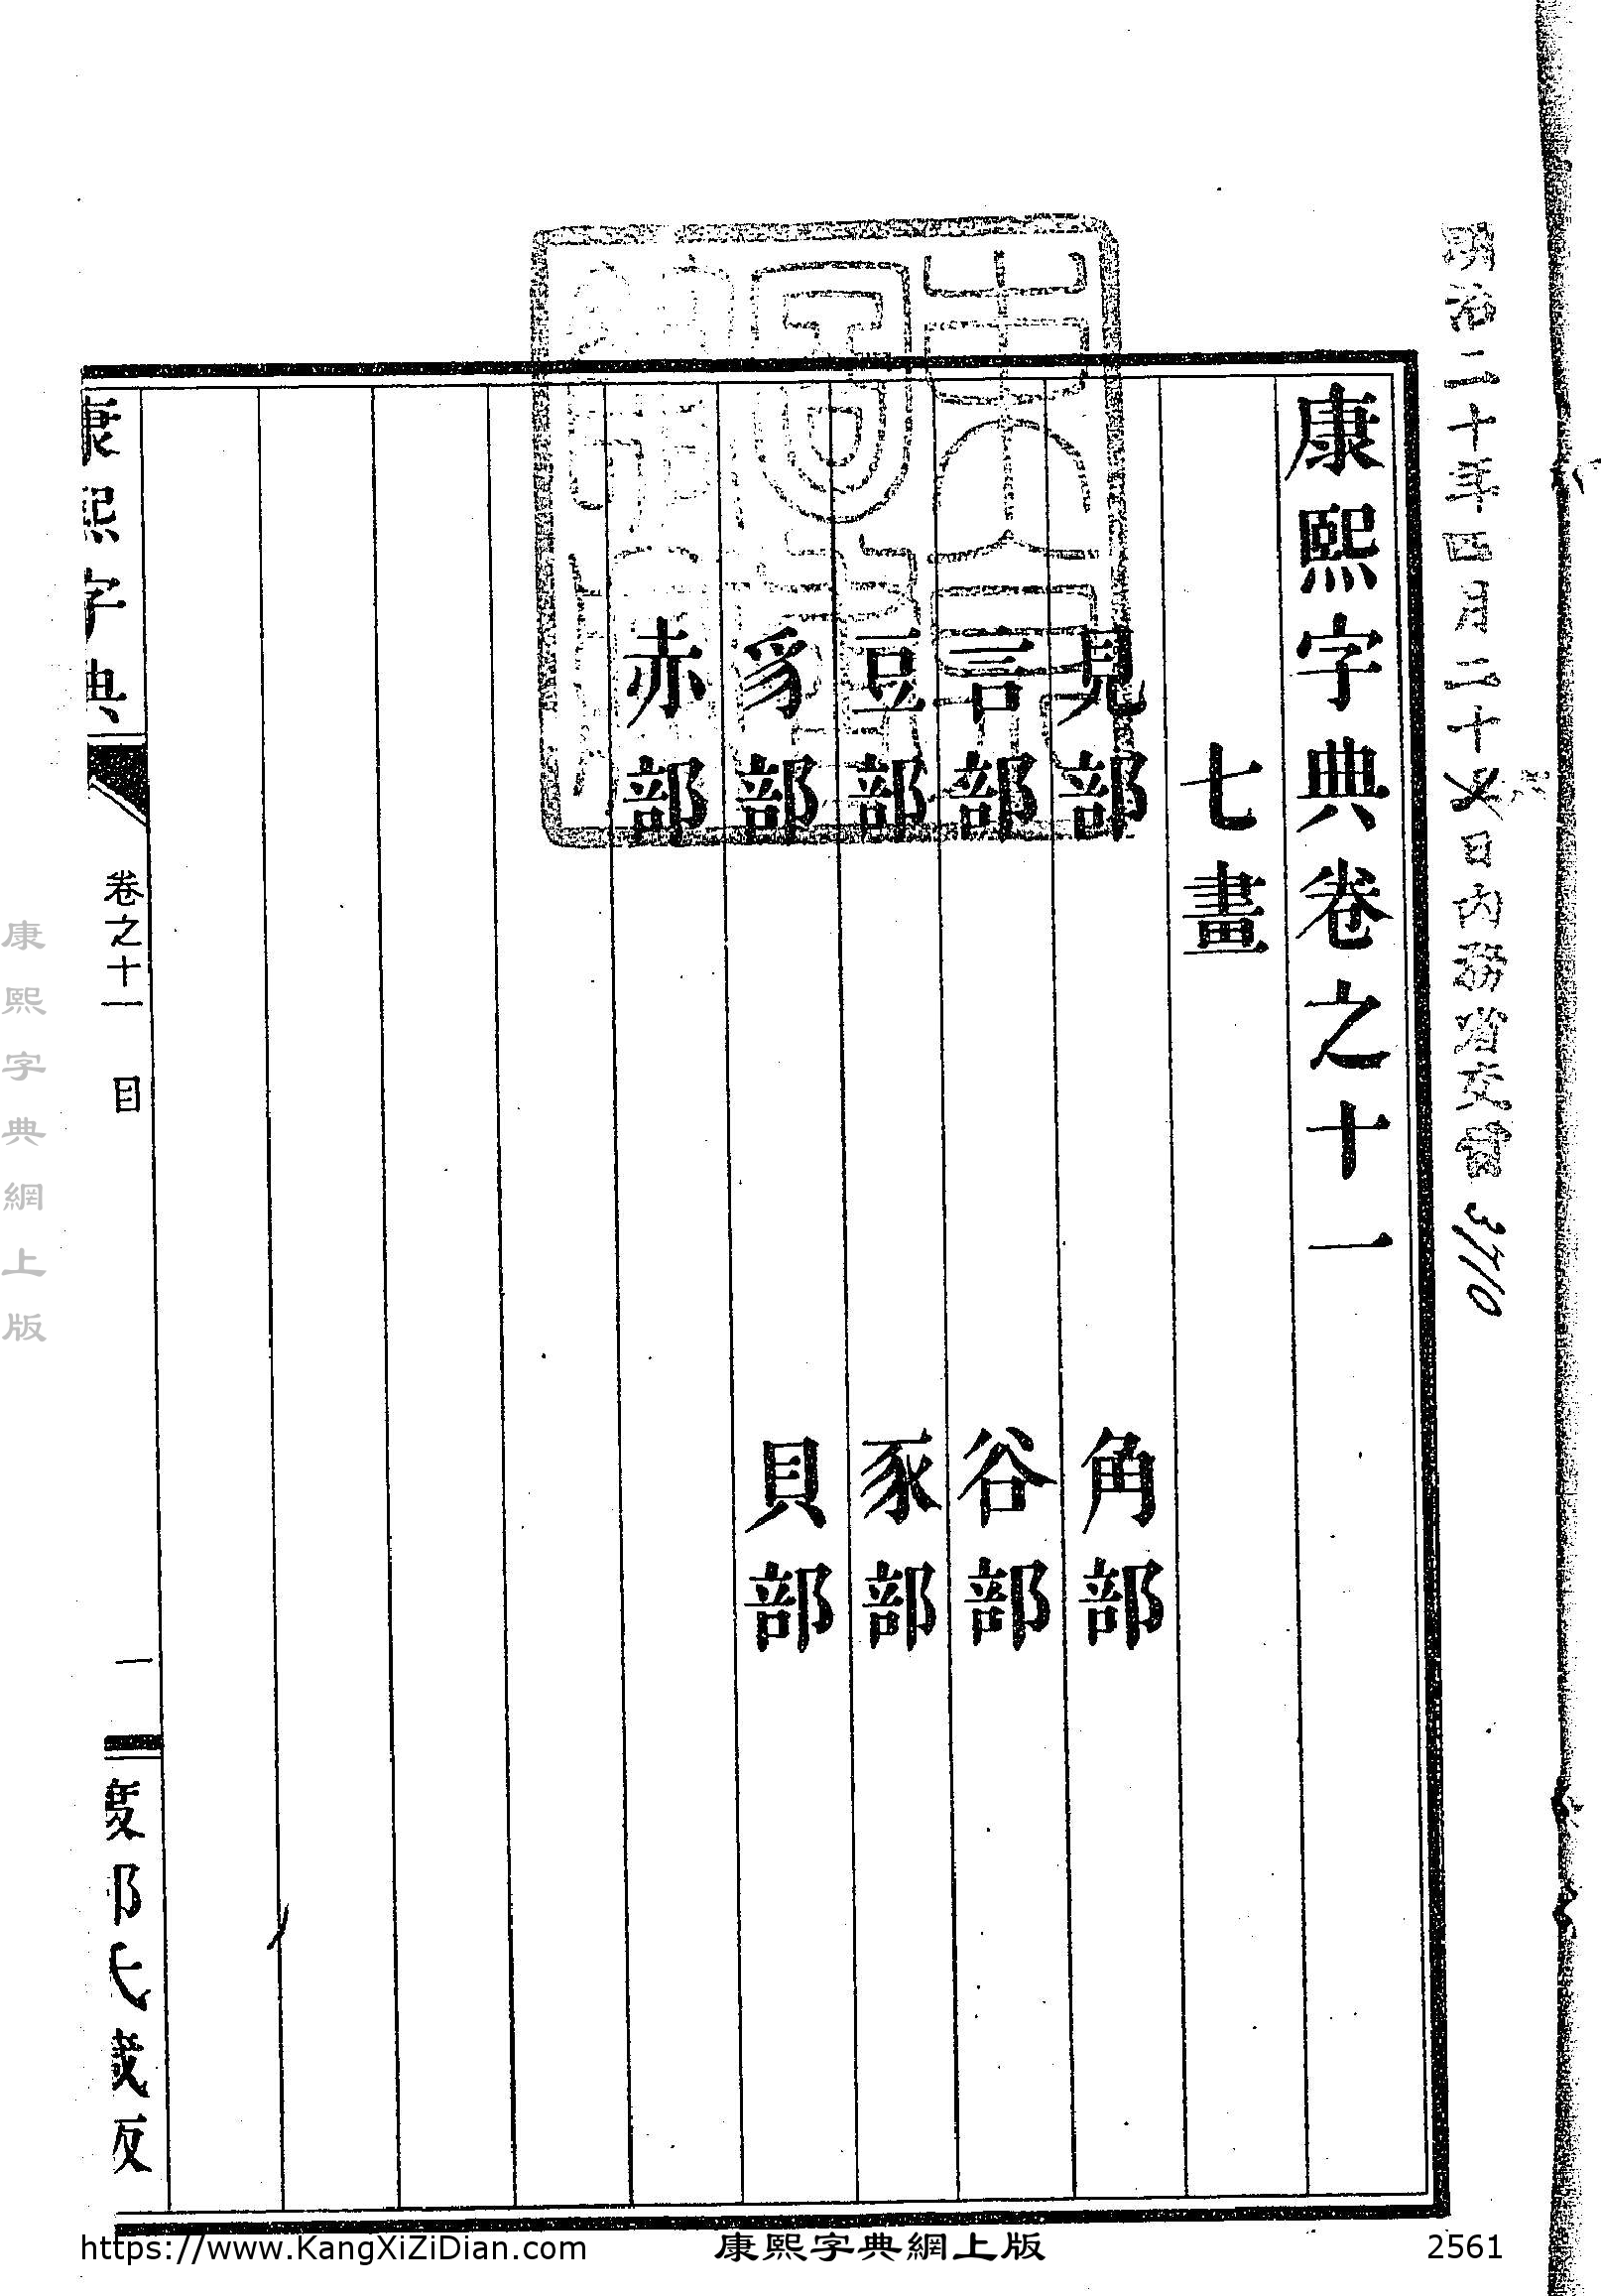 明治二十年四月二十 日内務省交付
3710
康熙字典卷之十一
七畫
見部 角部
言部 谷部
豆部 豕部
豸部 貝部
赤部
康熙字典 卷之十一 目 一
氏藏
康熙字典網上版
https://www.KangXiZiDian.com 康熙字典網上版 2561